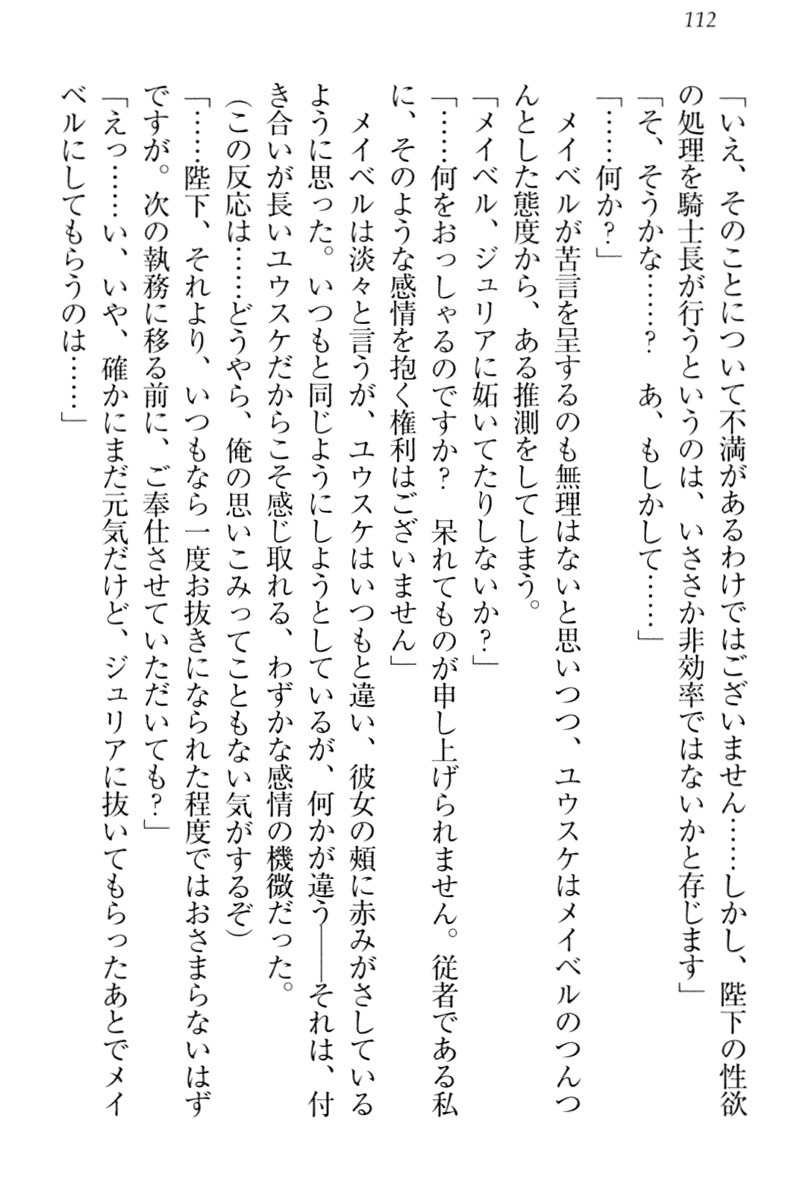 112
「いえ、そのことについて不満があるわけではございません……しかし、陛下の性欲
の処理を騎士長が行うというのは、いささか非効率ではないかと存じます」
「そ、そうかな……？　あ、もしかして……」
「……何か？」
　メイベルが苦言を呈するのも無理はないと思いつつ、ユウスケはメイベルのつんつ
んとした態度から、ある推測をしてしまう。
「メイベル、ジュリアに妬いてたりしないか？」
「……何をおっしゃるのですか？　呆れてものが申し上げられません。従者である私
に、そのような感情を抱く権利はございません」
　メイベルは淡々と言うが、ユウスケはいつもと違い、彼女の頰に赤みがさしている
ように思った。いつもと同じようにしようとしているが、何かが違う――それは、付
き合いが長いユウスケだからこそ感じ取れる、わずかな感情の機微だった。
（この反応は……どうやら、俺の思いこみってこともない気がするぞ）
「……陛下、それより、いつもなら一度お抜きになられた程度ではおさまらないはず
ですが。次の執務に移る前に、ご奉仕させていただいても？」
「えっ……い、いや、確かにまだ元気だけど、ジュリアに抜いてもらったあとでメイ
ベルにしてもらうのは……」